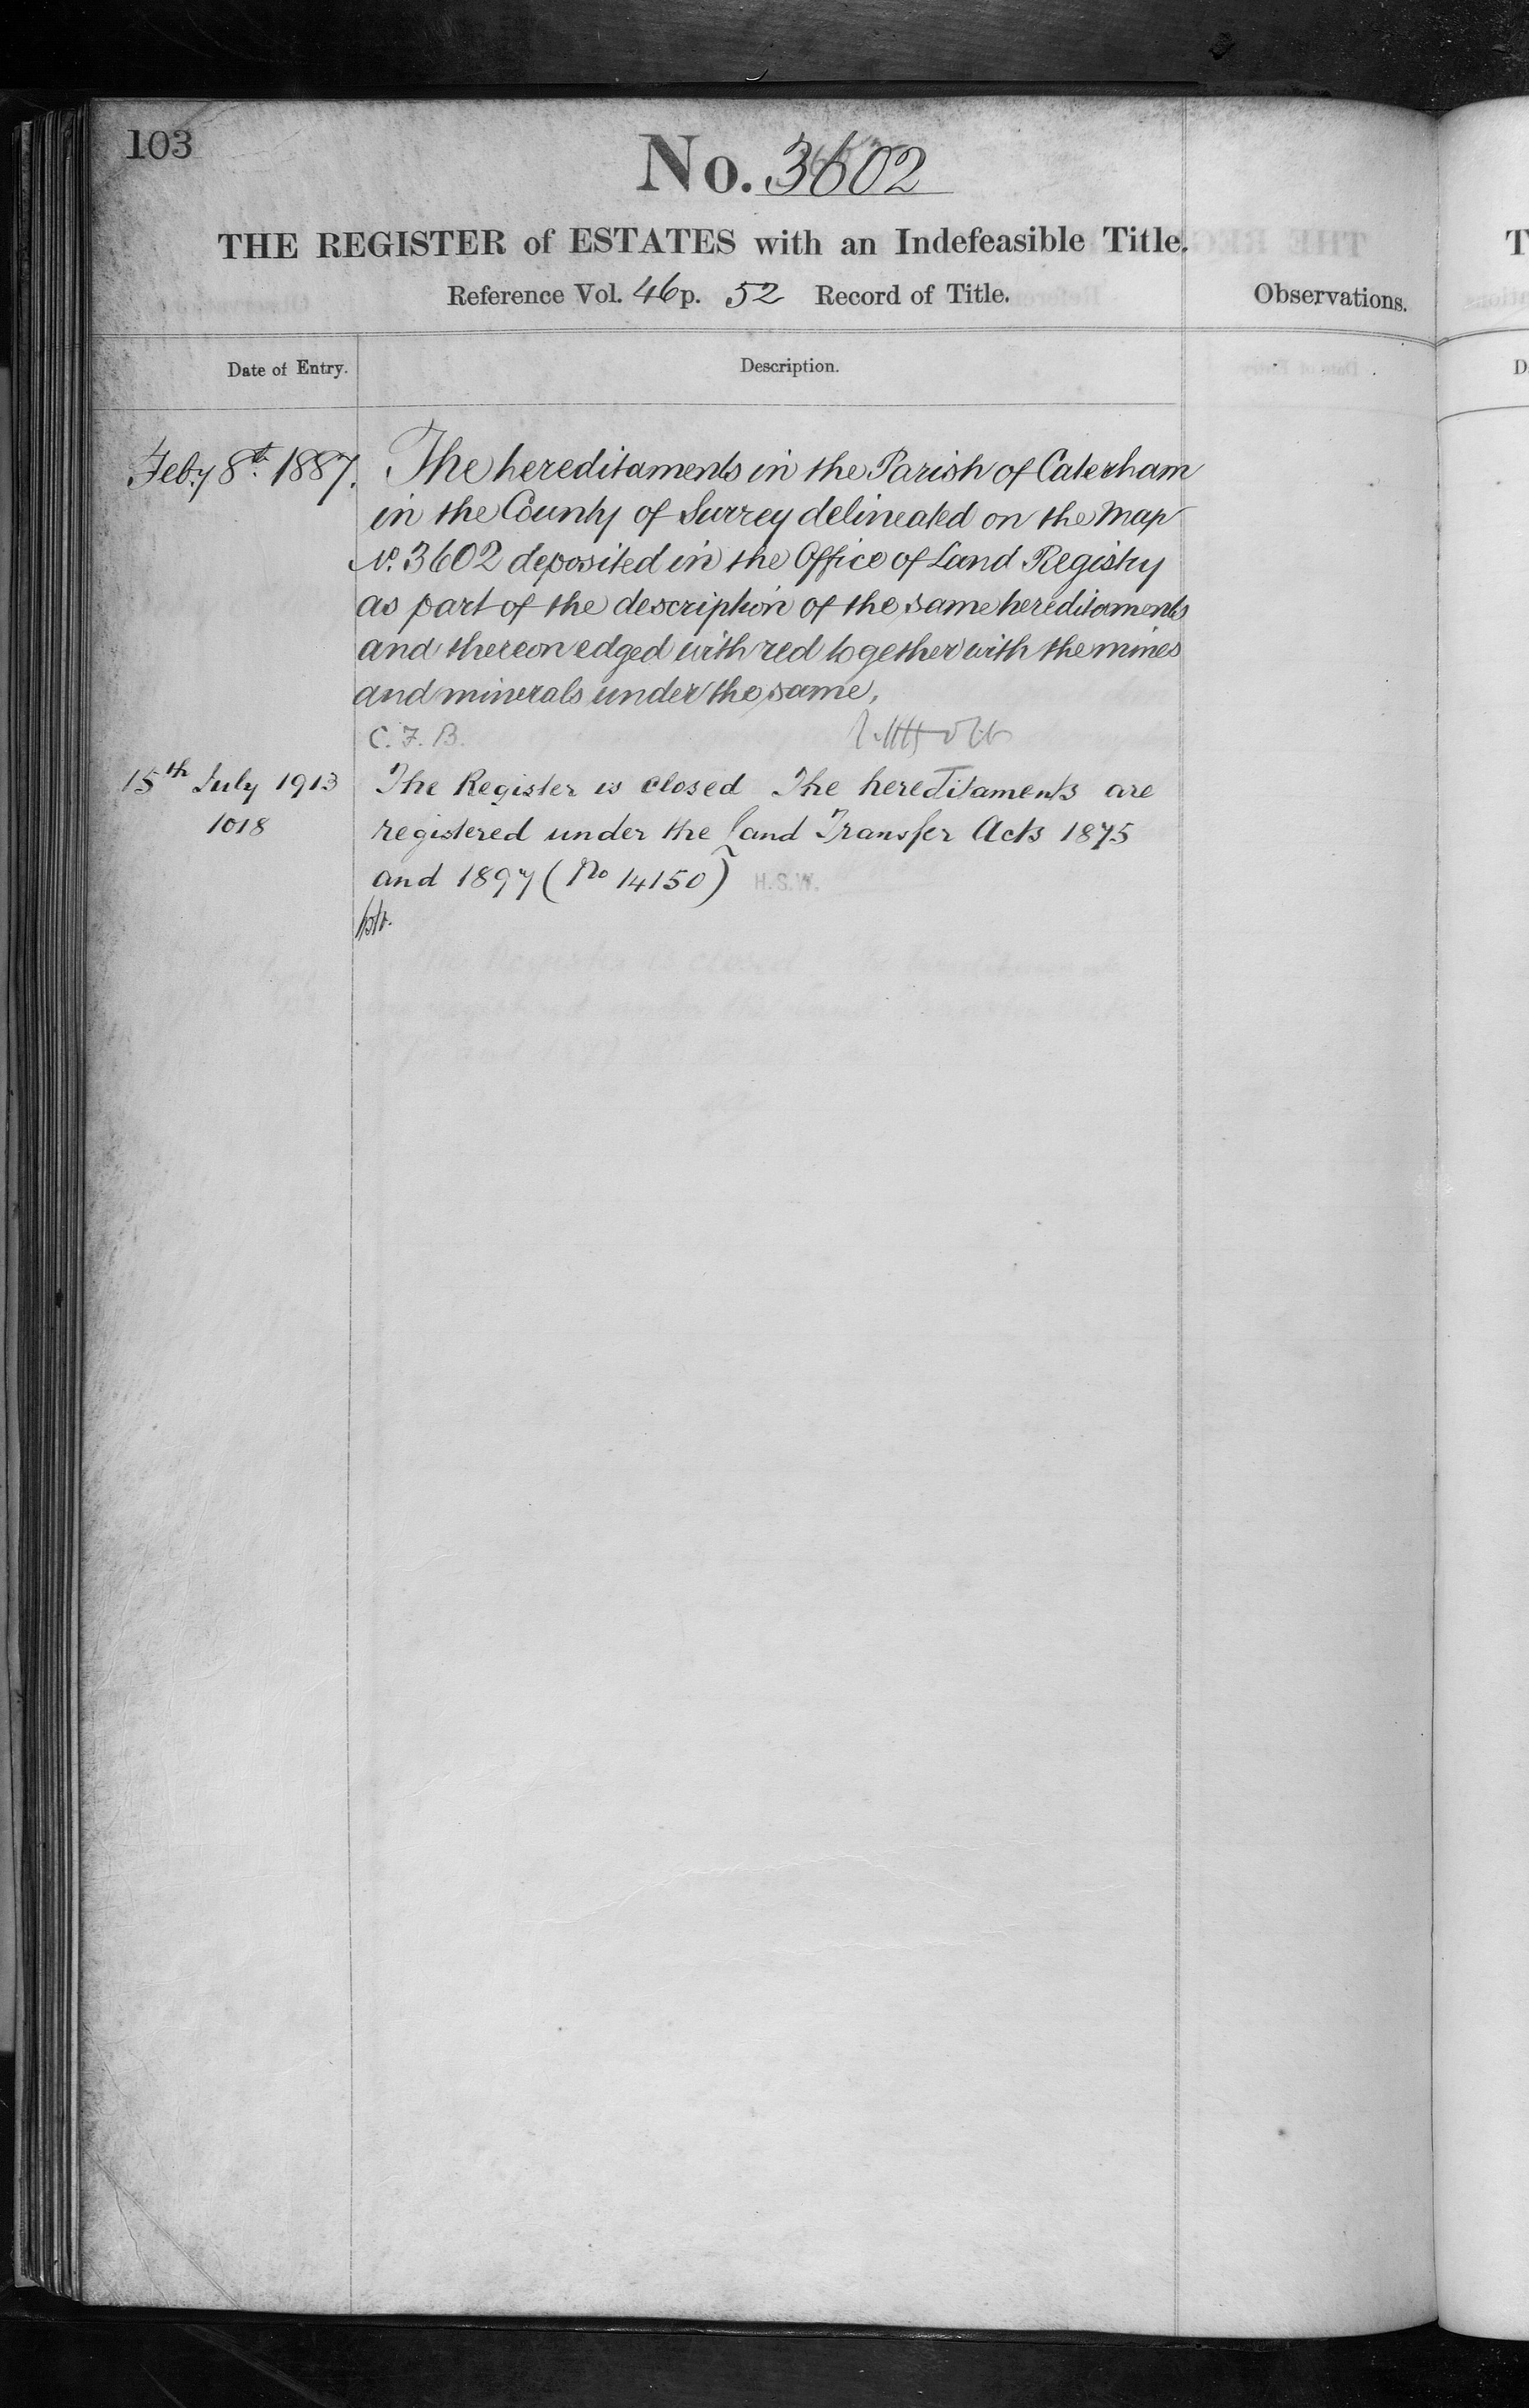 103
No. 3602
THE REGISTER of ESTATES with an Indefeasible Title.
Reference Vol. 46 p. 52 Record of Title.
Observations.
Date of Entry.
Description.
Feby 8th 1887. The hereditaments in the Parish of Caterham
in the County of Surrey delineated on the Map
No. 3602 deposited in the Office of Land Registry
as part of the description of the same hereditaments
and thereon edged with red together with the mines
and minerals under the same.
C. F. B.
15th July 1913 The Register is closed The hereditaments are
1018 registered under the Land Transfer Acts 1875
and 1897 (No 14150) H.S.W.